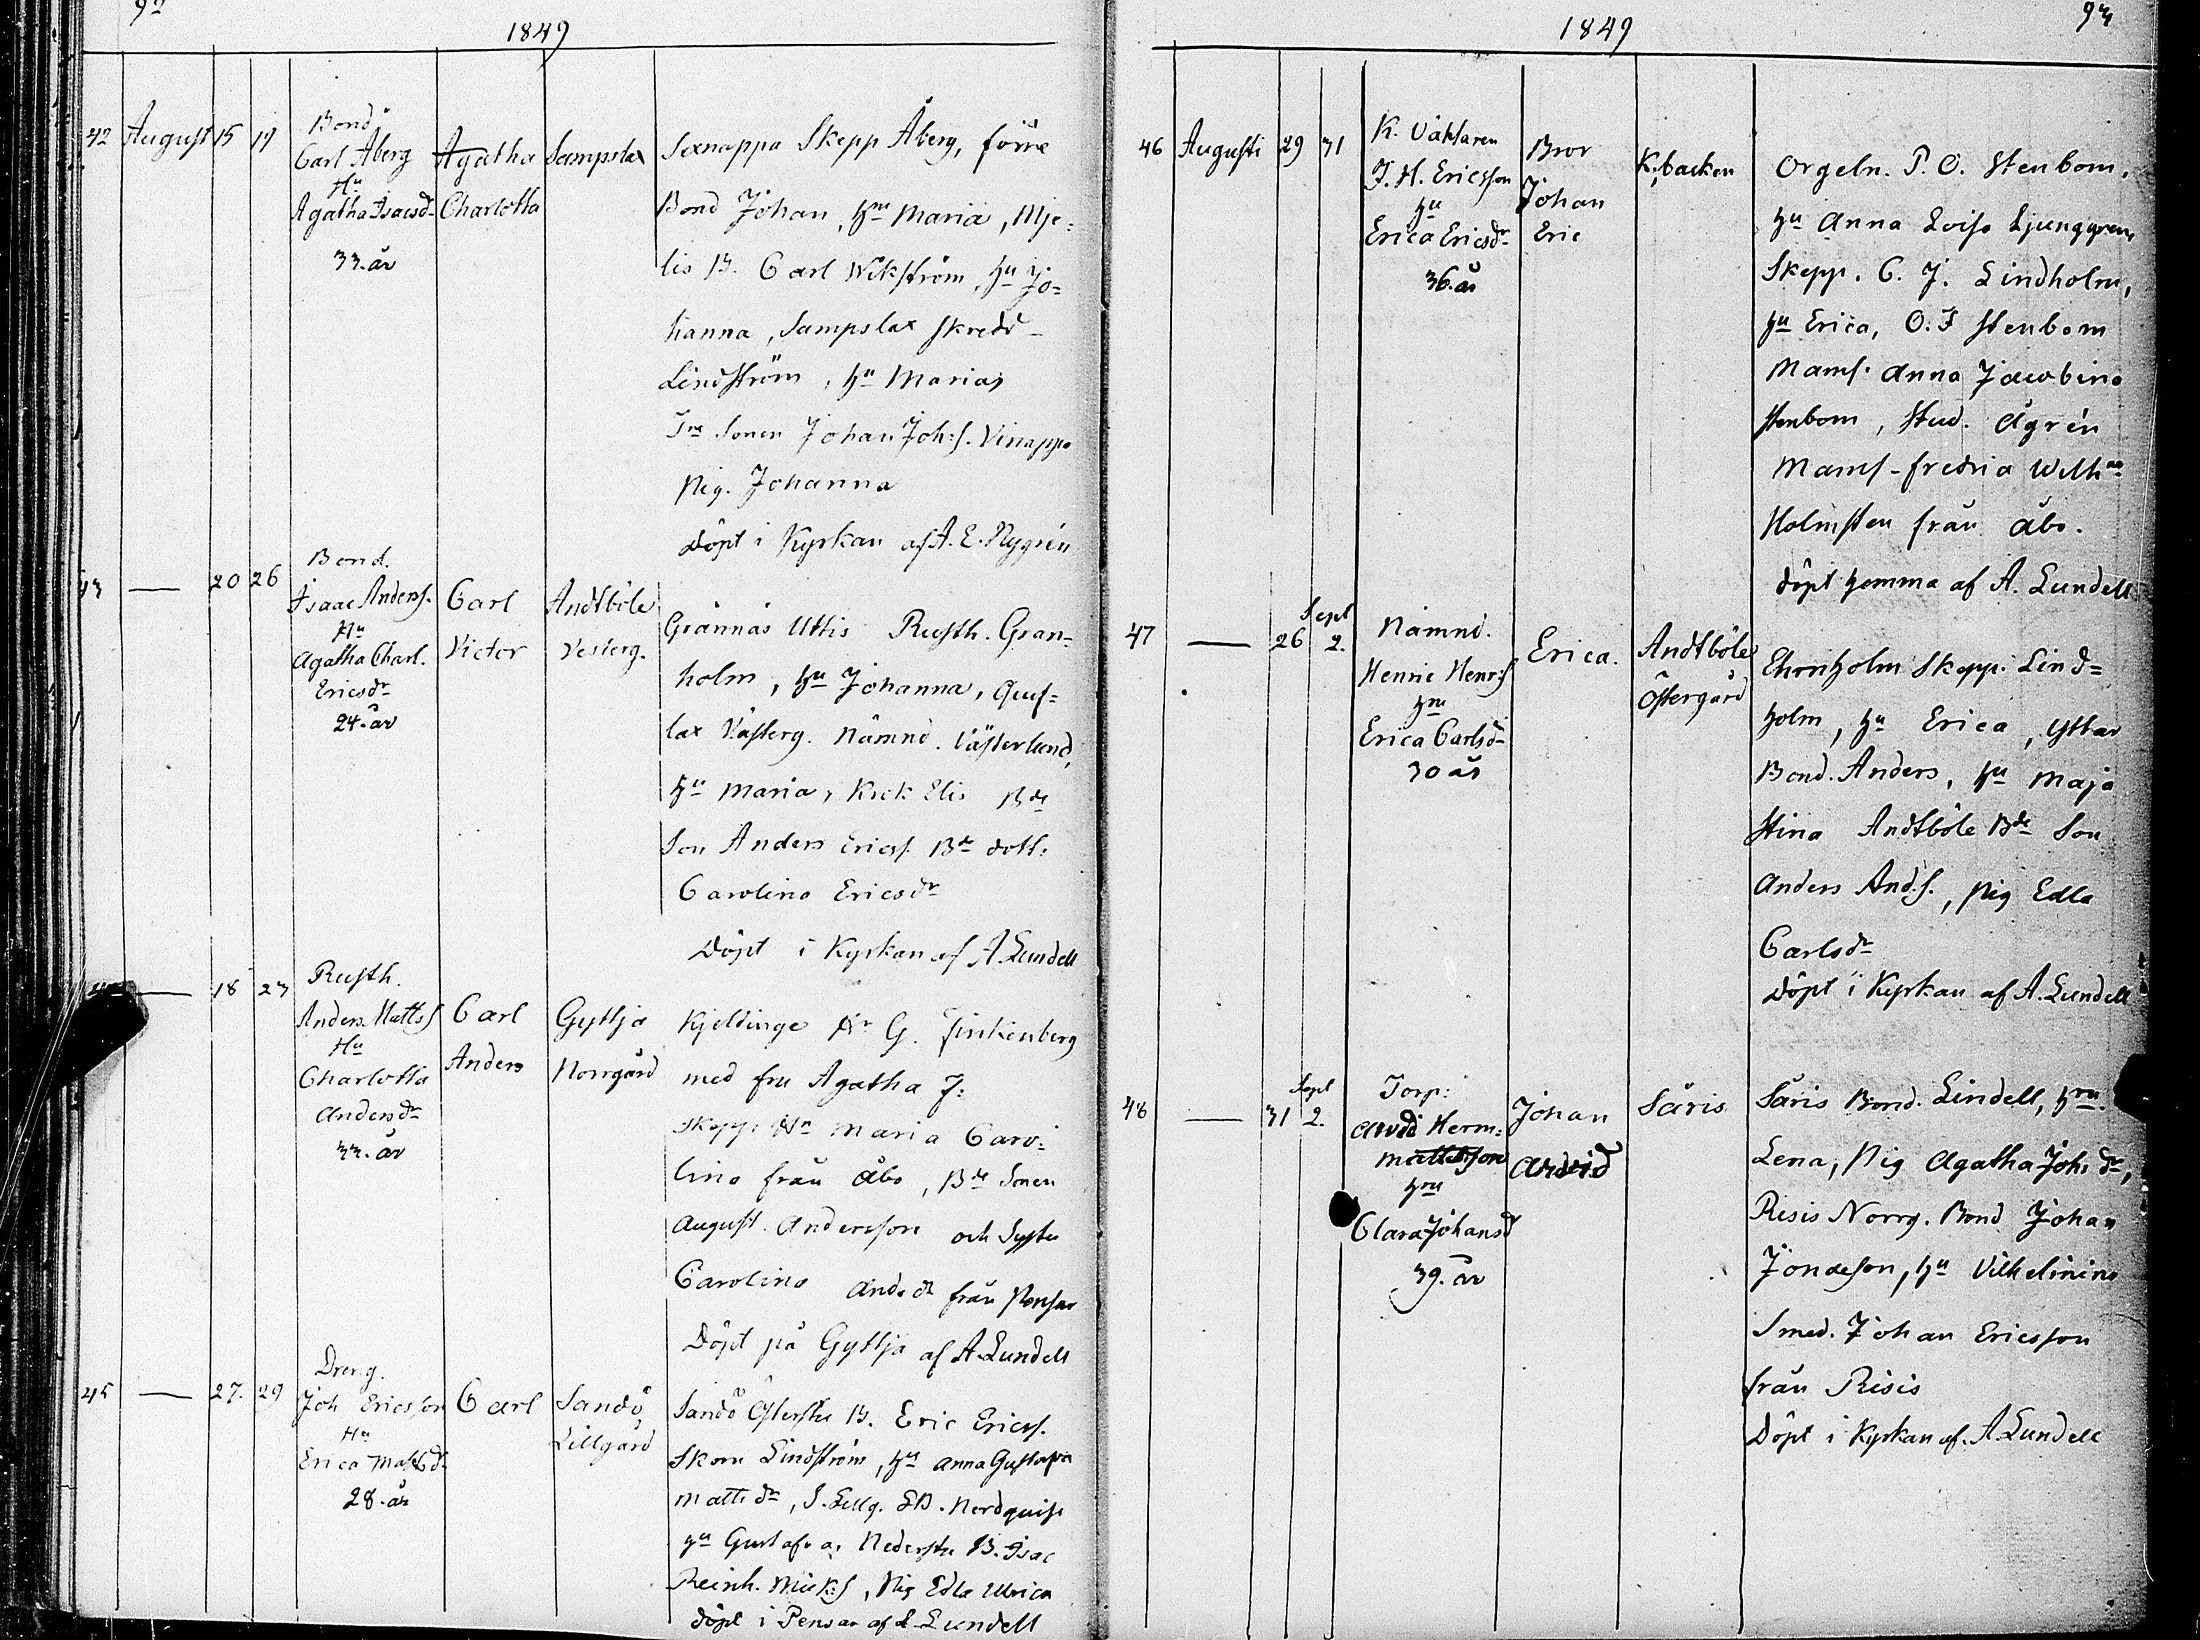 92
1849
42 August 15 19
Bond
Carl Åberg
Hu
Agatha Isacsd.
33. år
Agatha
Charlotta
Sampslax
Sexnappa Skepp Åberg, förre
Bond Johan, hu Maria, Mje-
lis B. Carl Wikström, hu Jo-
hanna, Sampslax Skredd
Lindström, hu Maria,
Sonen Johan Joh:s. Vinappa
Pig. Johanna
Döpt i Kyrkan af A. E. Nygrén
43 — 20 26
Bond.
Isaac Anders.
Hu
Agatha Charl.
Ericsdr
24. år
Carl
Victor
Andtböle
Vesterg.
Grännäs Uttis Rusth. Gran-
holm, hu Johanna, Qvef-
lax Västerg. Nämnd. Västerlund,
hu Maria, Elis Bde
Son Anders Erics. Bde dott.
Carolina Ericsdr
Döpt i Kyrkan af A. Lundell
— 18 23
Rusth.
Anders Matts
Hu
Charlotta
Andersdr
33. år
Carl
Anders
Gyttja
Norrgård
Kjeldinge Hr G. Finkenberg
med fru Agatha J:
Skepp: Maria Caro-
lina från Åbo, Bde Sonen
August. Andersson och Syster
Carolina Andsdr från Pensar
Döpt på Gyttja af A. Lundell
45 — 27. 29
Dreng.
Joh Ericsson
Hu
Erica Mattsd.
28. år
Carl
Sandö
Lillgård
Sandö Östersta B. Eric Erics.
Skom Lindström, hu Anna Gustafva
Mattsdr, S. Lillg. Nordqvist
hu Gustafva, Nedersta B. Isac
Reinh. Mick:s, Pig Edla Ulrica
döpt i Pensar af A Lundell
93
1849
46 Augusti 29 31
K. Väktaren
J. H. Ericsson
hu
Erica Ericsdr
36. år
Bror
Johan
Eric
K. backen
Orgeln. P. O. Stenbom,
hu Anna Lovisa Ljunggren,
Skepp. C. J. Lindholm,
hu Erica, O. F Stenbom
Mams. Anna Jacobina
Stenbom, Stud. Ågrén
Mams. Fredrica Wilhna
Holmsten från Åbo.
döpt hemma af A. Lundell
47 — 26 Sept 2.
Nämnd.
Henric Henr:s
hu
Erica Carlsd
30 år
Erica.
Andtböle
Östergård
Ehrnholm Skepp. Lind-
holm, hu Erica, Yttar
Bond. Anders, hu Maja
Stina Andtböle Bde Son
Anders And:s., Pig Edla
Carlsdr
Döpt i Kyrkan af A. Lundell
48 — 31 Sept 2.
Torp:
Arvid Herm:
Mattsson
hru
Clara Johansd
39. år
Johan
Arvid
Säris
Säris Bond. Lindell, hru.
Lena, Pig Agatha Johsdr,
Risis Norrg. Bond Johan
Jonasson, hu Vilhelmina
Smed. Johan Ericsson
från Risis
Döpt i Kyrkan af. A. Lundell